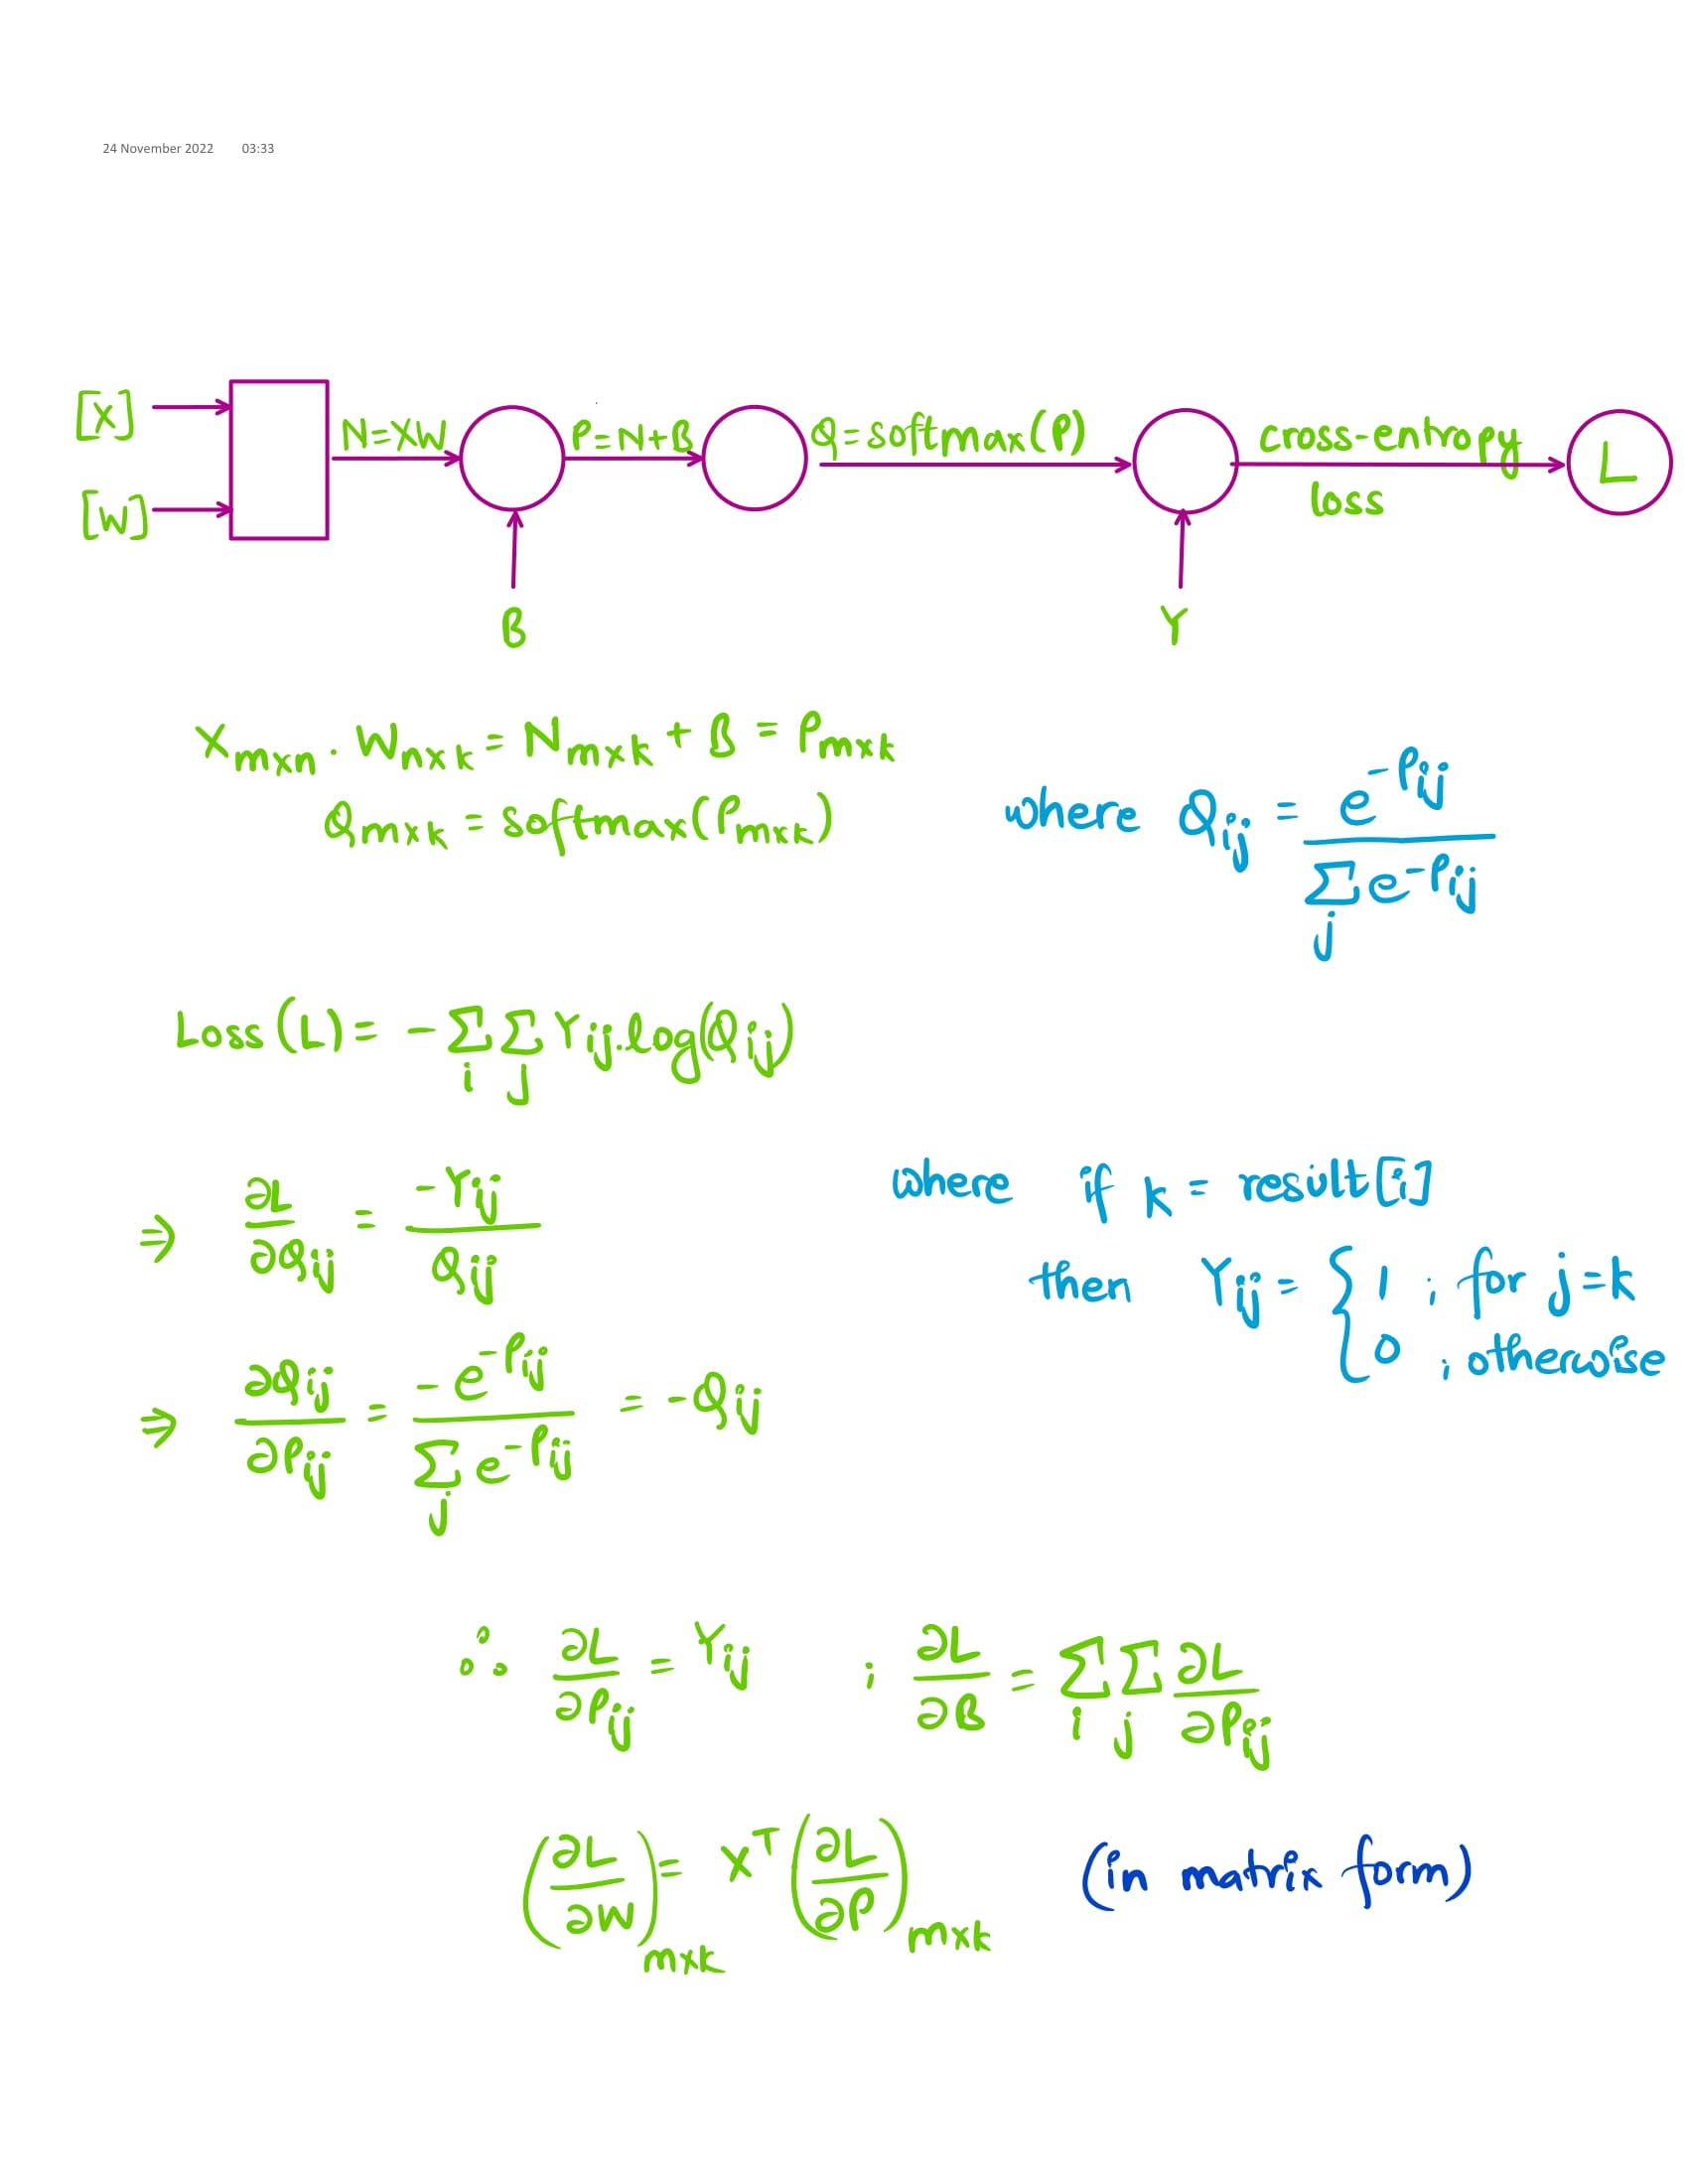 24 November 2022 03:33
[X] N=XW P=N+B Q=softmax(P) cross-entropy L
[W] loss
B Y
X_{mxn} . W_{nxk} = N_{mxk} + B = P_{mxk}
Q_{mxk} = softmax(P_{mxk}) where Q_{ij} = e^{-P_{ij}} / ∑_j e^{-P_{ij}}
Loss (L) = - ∑_i ∑_j Y_{ij}.log(Q_{ij})
where if k = result[i]
⇒ ∂L/∂Q_{ij} = -Y_{ij}/Q_{ij} then Y_{ij} = { 1 ; for j=k
0 ; otherwise
⇒ ∂Q_{ij}/∂P_{ij} = -e^{-P_{ij}} / ∑_j e^{-P_{ij}} = -Q_{ij}
∴ ∂L/∂P_{ij} = Y_{ij} ; ∂L/∂B = ∑_i ∑_j ∂L/∂P_{ij}
(∂L/∂W)_{mxk} = X^T (∂L/∂P)_{mxk} (in matrix form)